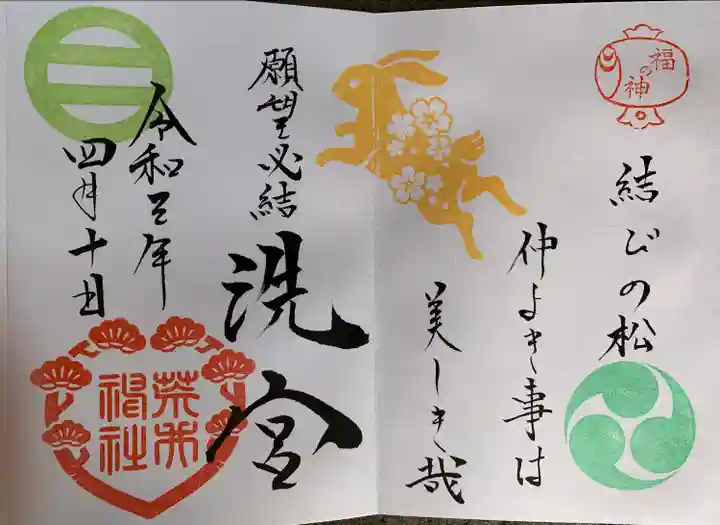 福の神
結びの松
仲よき事は
美しき哉
願望必結
洗宮
令和三年
四月十日
荒井
神社